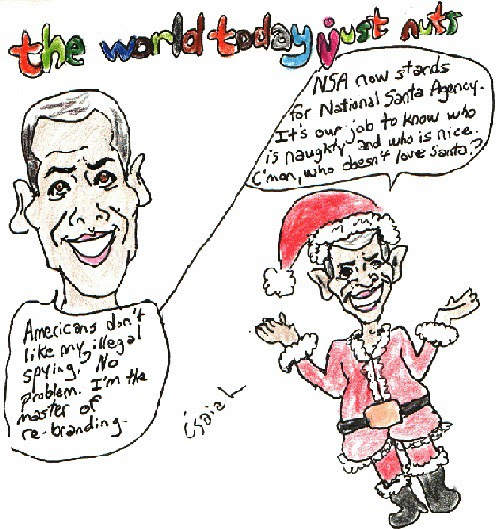 the world today just nuts
Americans don't
like my illegal
spying. No
problem. I'm the
master of
re-branding.
NSA now stands
for National Santa Agency.
It's our job to know who
is naughty and who is nice.
C'mon, who doesn't love Santa?
Isaiah